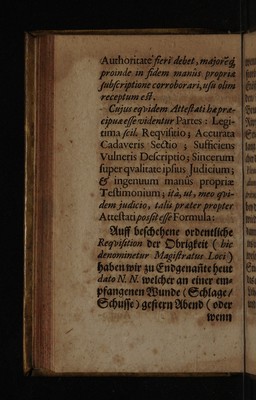 Authoritate fieri debet, majoréq;
proinde in fidem manûs propriæ
subscriptione corroborari, usu olim
receptum est.
Cujus eqvidem Attestati hæ præ-
cipuæ esse videntur Partes: Legi-
tima scil. Reqvisitio; Accurata
Cadaveris Sectio; Sufficiens
Vulneris Descriptio; Sincerum
super qvalitate ipsius Judicium;
& ingenuum manûs propriæ
Testimonium; ita, ut, meo qvi-
dem judicio, talis præter propter
Attestati possit esse Formula:
Auff beschehene ordentliche
Reqvisition der Obrigkeit (hic
denominetur Magistratus Loci)
haben wir zu Endgenañte heut
dato N. N. welcher an einer em-
pfangenen Wunde (Schlage/
Schusse) gestern Abend (oder
wenn